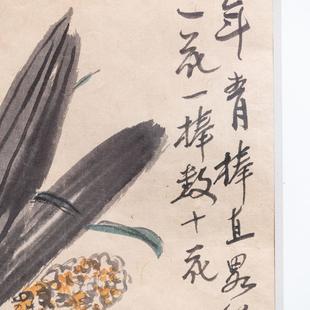 年青棒直
一花一棒数十花